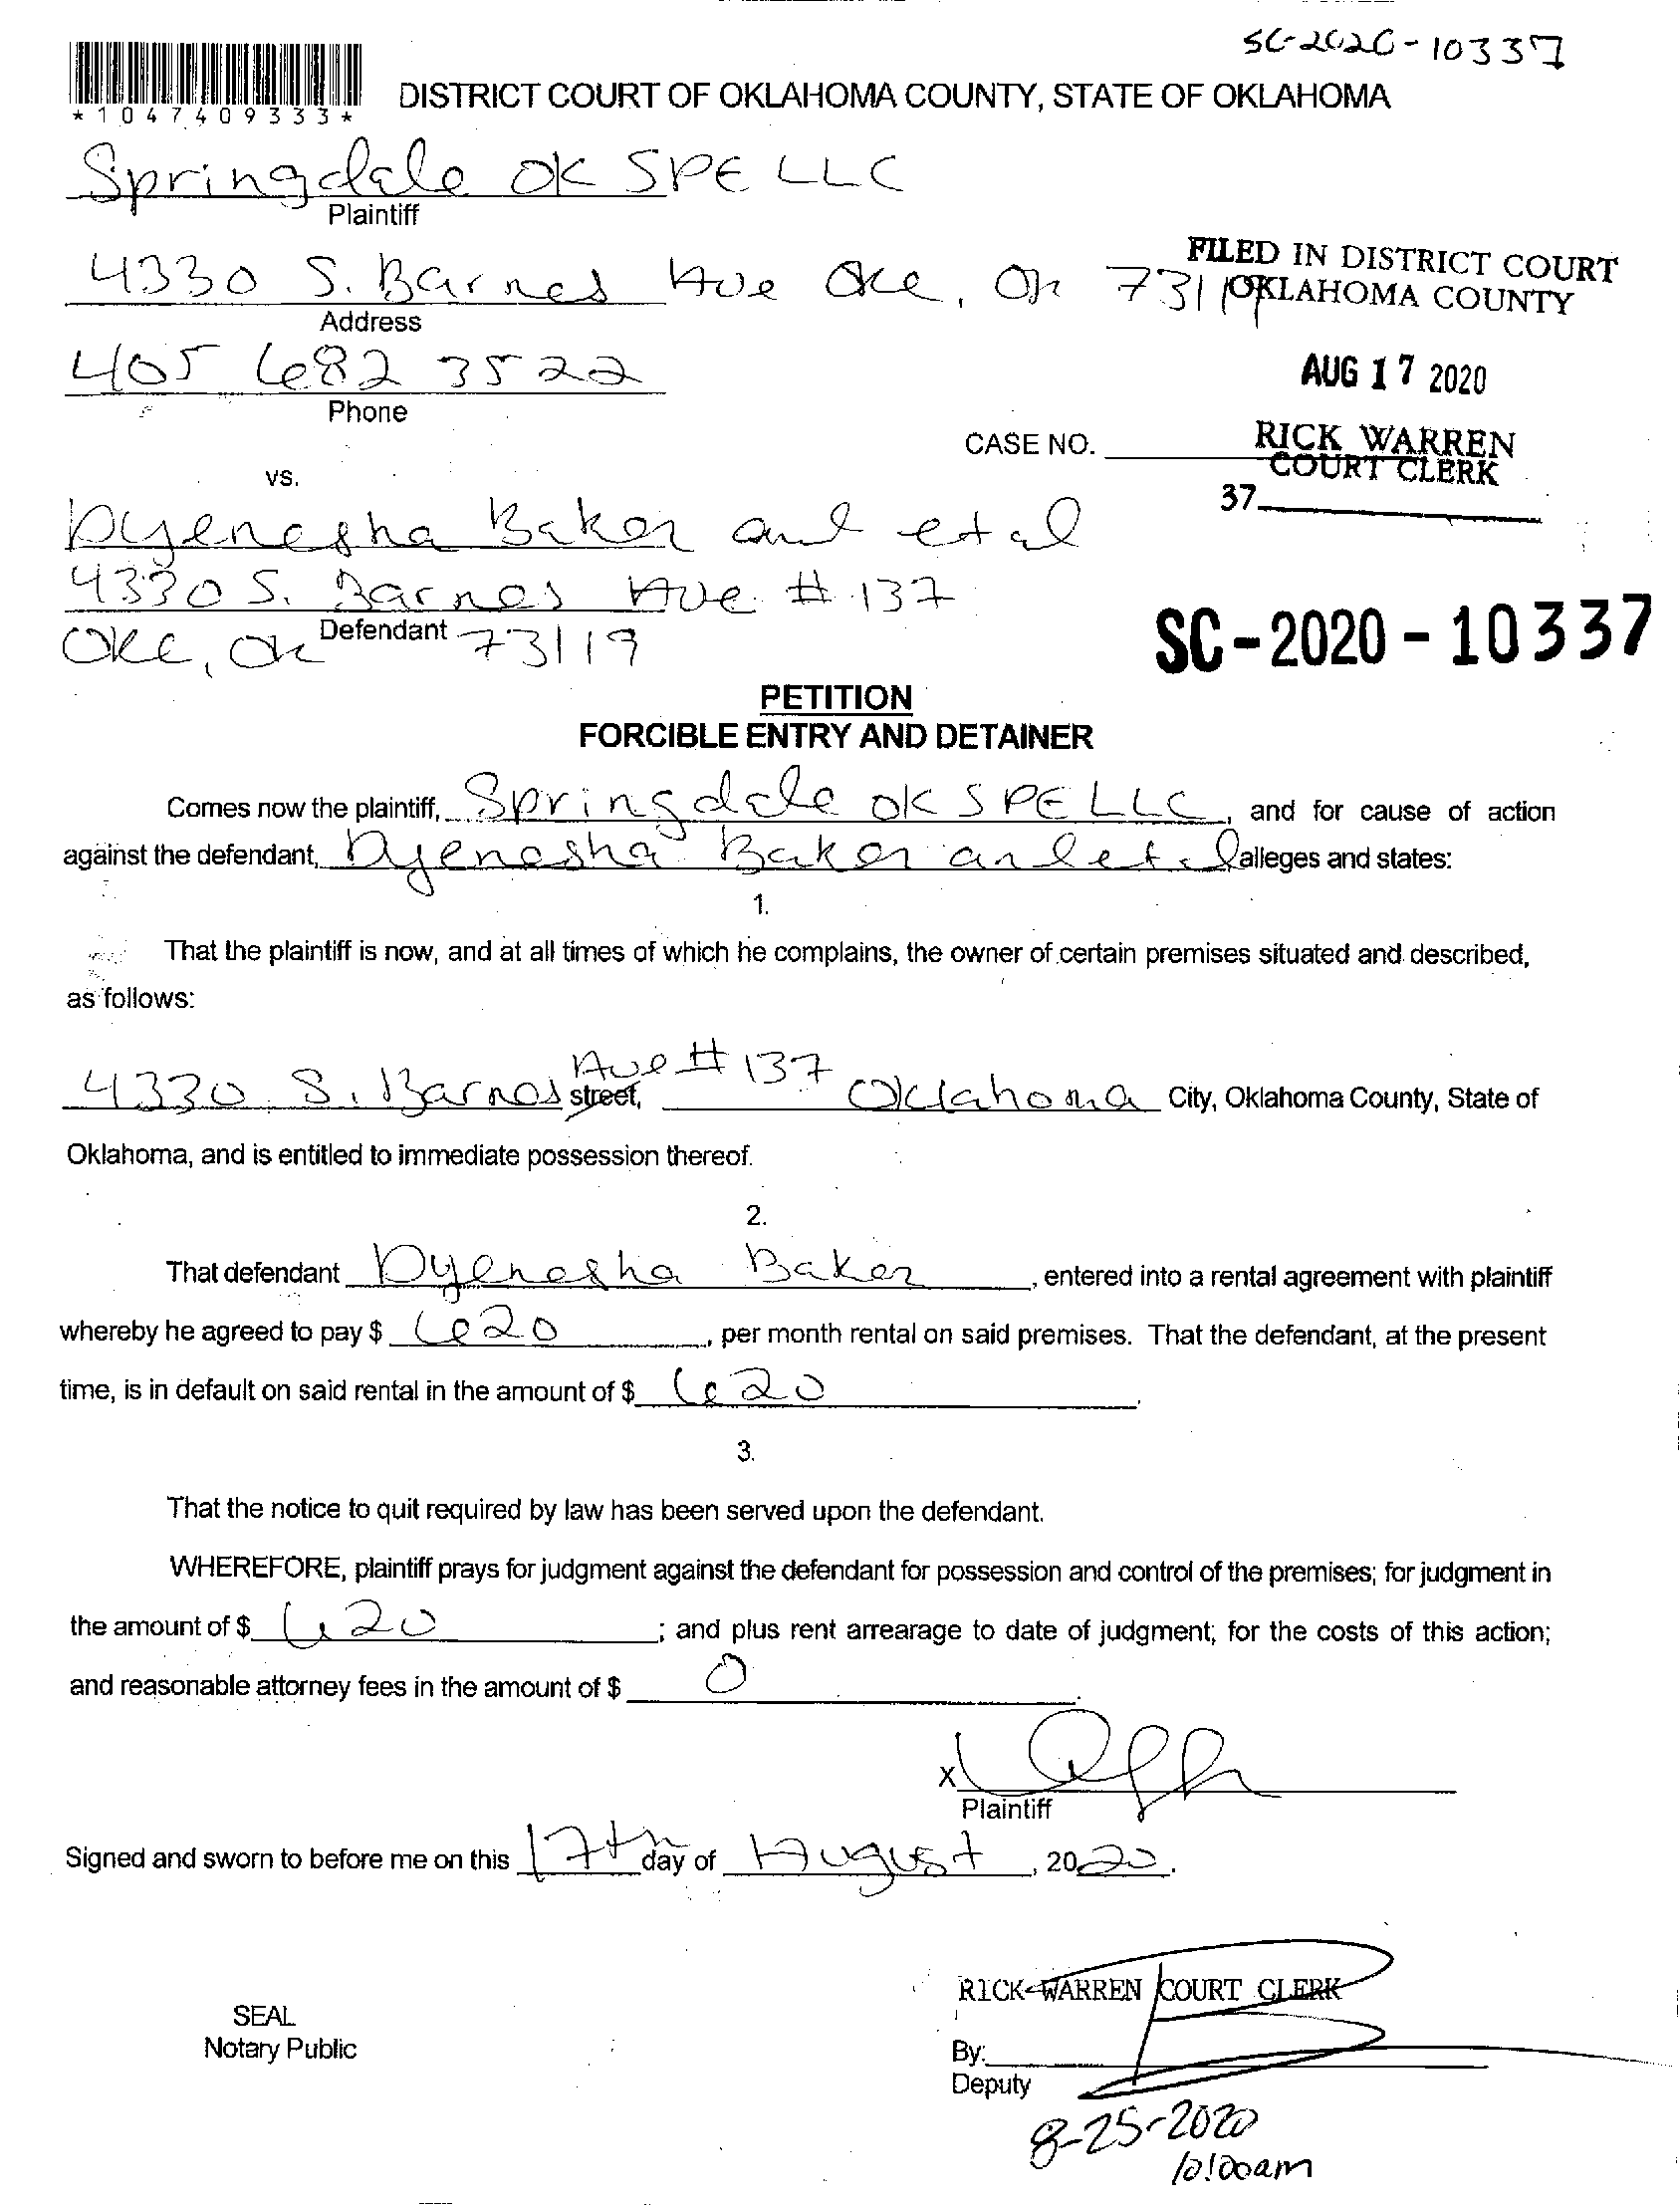 SC-2020-10337
*1047409333*
DISTRICT COURT OF OKLAHOMA COUNTY, STATE OF OKLAHOMA
Springdale OK SPE LLC
Plaintiff
4330 S. Barnes Ave OKC, OK 73119
Address
FILED IN DISTRICT COURT
OKLAHOMA COUNTY
405 682 3522
Phone
AUG 17 2020
CASE NO.
RICK WARREN
COURT CLERK
37
vs.
Dyenesha Baker and et al
4330 S. Barnes Ave # 137
Defendant
OKC, OK 73119
SC-2020-10337
PETITION
FORCIBLE ENTRY AND DETAINER
Comes now the plaintiff, Springdale OK SPE LLC, and for cause of action
against the defendant, Dyenesha Baker and et al alleges and states:
1.
That the plaintiff is now, and at all times of which he complains, the owner of certain premises situated and described,
as follows:
4330 S. Barnes Ave # 137 street, Oklahoma City, Oklahoma County, State of
Oklahoma, and is entitled to immediate possession thereof.
2.
That defendant Dyenesha Baker, entered into a rental agreement with plaintiff
whereby he agreed to pay $ 620, per month rental on said premises. That the defendant, at the present
time, is in default on said rental in the amount of $ 620.
3.
That the notice to quit required by law has been served upon the defendant.
WHEREFORE, plaintiff prays for judgment against the defendant for possession and control of the premises; for judgment in
the amount of $ 620; and plus rent arrearage to date of judgment; for the costs of this action;
and reasonable attorney fees in the amount of $ 0.
X
Plaintiff
Signed and sworn to before me on this 17th day of August, 2020.
RICK WARREN COURT CLERK
SEAL
Notary Public
By:
Deputy
8-25-2020
10:00am